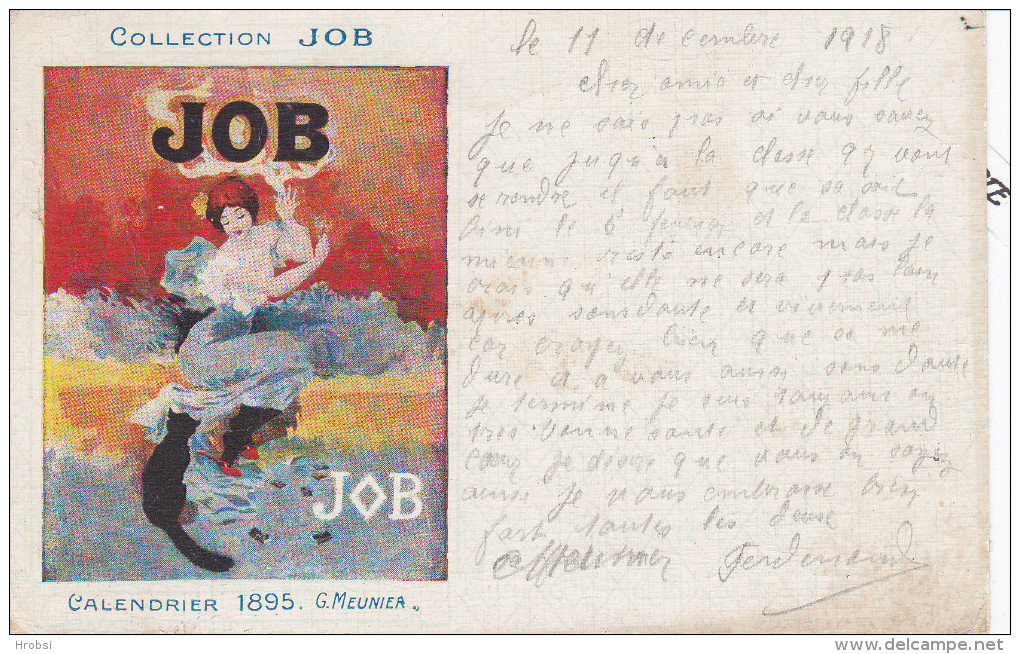 COLLECTION JOB
JOB
JOB
CALENDRIER 1895. G. MEUNIER
le 11 decembre 1918.
cher amie et cher fille
Je ne sais pas si vous savez
que juqu'a la classe 97 vont
se rendre il faut que sa soit
ainsi le 6 et la classe la
mienne reste encore mais je
crois qu elle ne sera pas loin
apres sans doute et vivement
car croyez bien que sa me
dure et a vous aussi sans doute
Je termine je suis toujours en
tres bonne sante et de grand
cœur je desire que vous en soyez
aussi Je vous embrasse bien
fort toutes les deux
Ferdinand
Hrobsi
www.delcampe.net